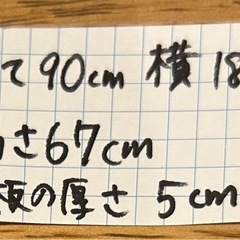 て90cm 横18
さ67cm
板の厚さ 5cm